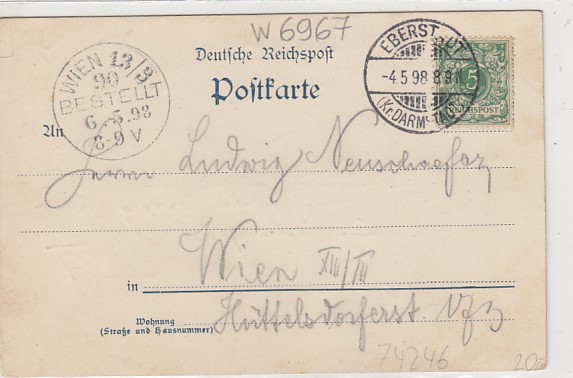 W 6967
Deutsche Reichspost
Postkarte
WIEN 13/3
90
BESTELLT
6 5.98
8-9 V
EBERSTADT
-4 5 98 8-9 N
(Kr. DARMSTADT)
5
REICHSPOST
An
Herrn Ludwig Neuschaefer
Wien XIII/
in
Hüttelsdorferst
Wohnung
(Straße und Hausnummer)
74246
20.-